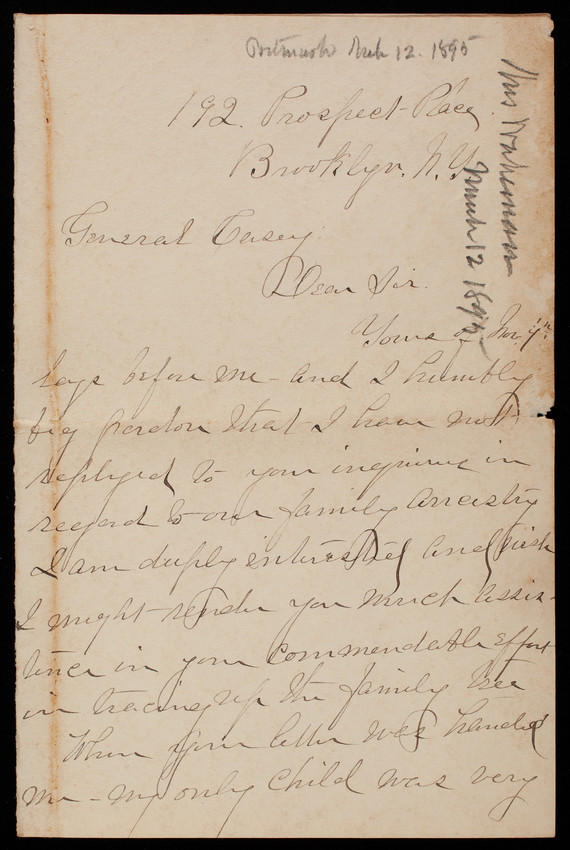 Postmark Mch 12. 1895
Mrs Wakeman
March 12 1895
192. Prospect Place.
Brooklyn. N.Y.
General Casey.
Dear Sir.
Yours of Nov.
lays before me - and I humbly
beg pardon that I have not
replyed to your inquiries in
regard to our family ancestry
I am deeply interested and wish
I might render you much assis-
tence in your commendable effort
in tracing up the family tree
When your letter was handed
me - my only child was very